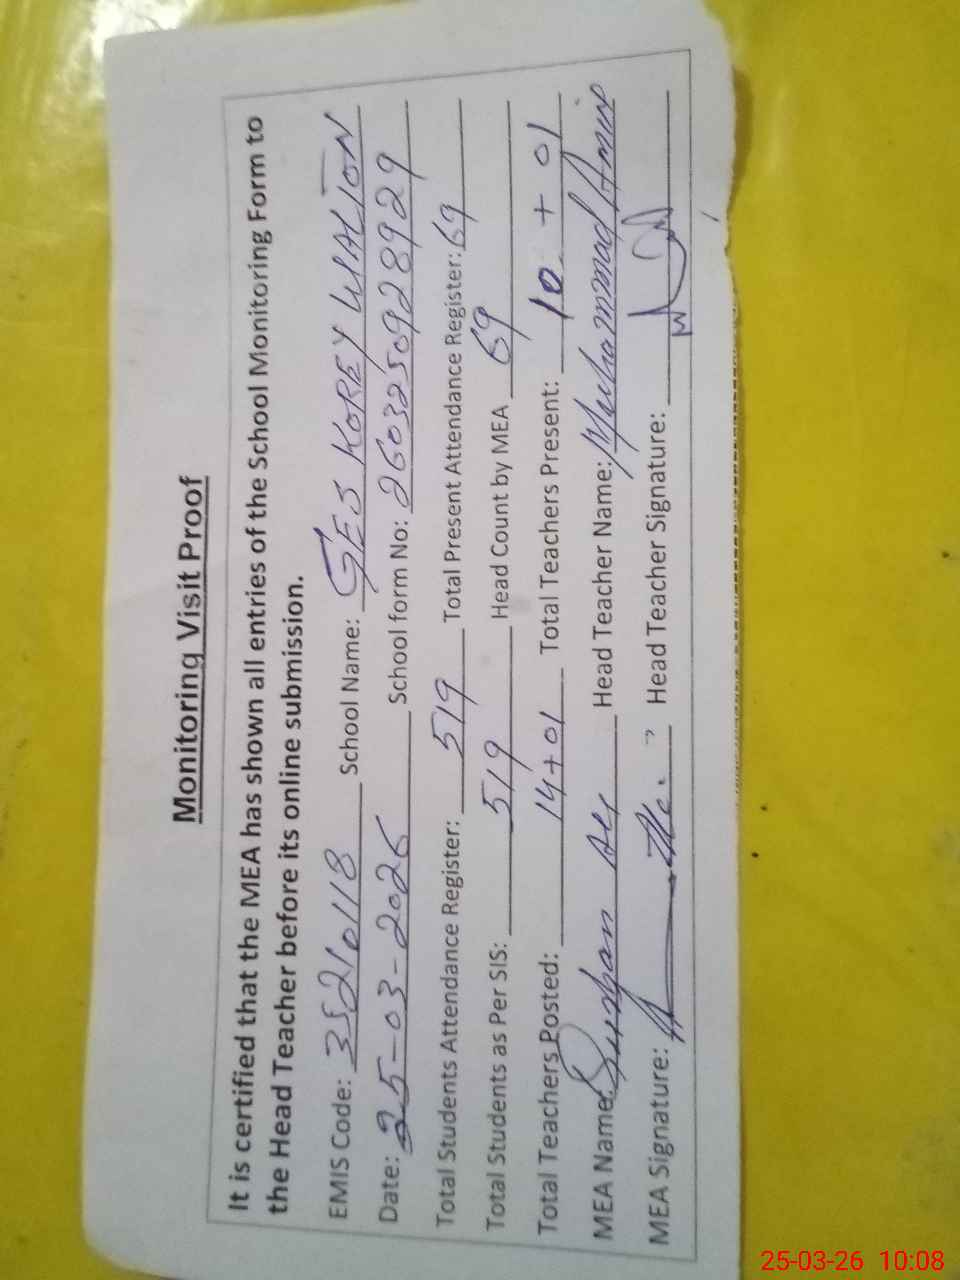 Monitoring Visit Proof
It is certified that the MEA has shown all entries of the School Monitoring Form to
the Head Teacher before its online submission.
EMIS Code: 35210118 School Name: GES KOREY WALION
Date: 25-03-2026 School form No: 2603250928929
Total Students Attendance Register: 519 Total Present Attendance Register: 69
Total Students as Per SIS: 519 Head Count by MEA 69
Total Teachers Posted: 14+01 Total Teachers Present: 10 + 01
MEA Name: Ali Head Teacher Name: Muhammad Amin
MEA Signature: Head Teacher Signature:
25-03-26 10:08